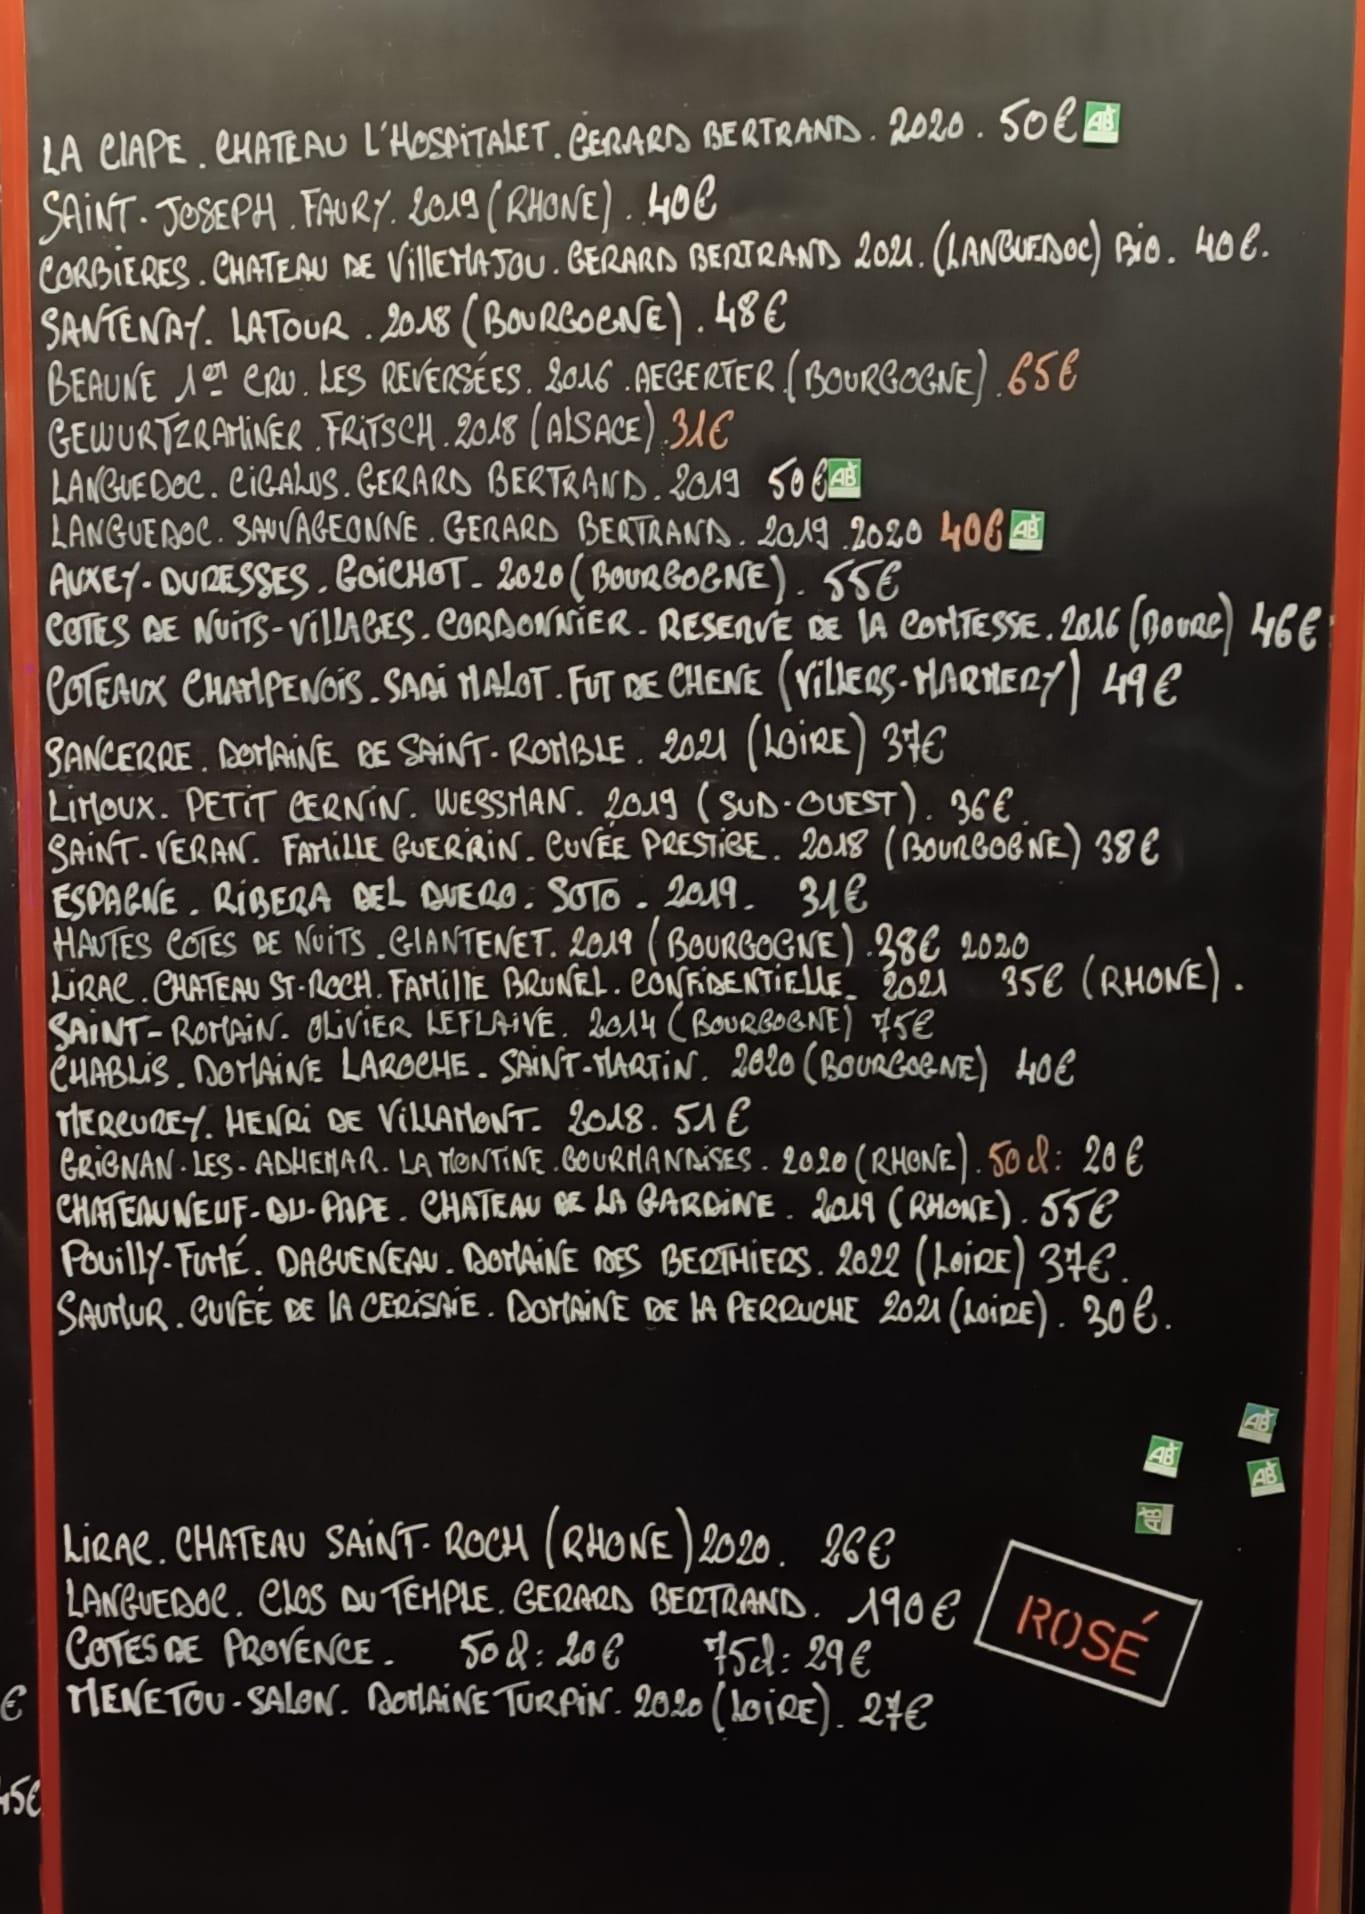 LA CLAPE. CHATEAU L'HOSPITALET. GERARD BERTRAND. 2020. 50€ AB
SAINT-JOSEPH. FAURY. 2019 (RHONE). 40€
CORBIERES. CHATEAU DE VILLEMAJOU. GERARD BERTRAND 2021. (LANGUEDOC) BIO. 40€.
SANTENAY. LATOUR. 2018 (BOURGOGNE). 48€
BEAUNE 1er CRU. LES REVERSÉES. 2016. AEGERTER. (BOURGOGNE). 65€
GEWURTZRAMINER. FRITSCH. 2018 (ALSACE). 31€
LANGUEDOC. CIGALUS. GERARD BERTRAND. 2019 50€ AB
LANGUEDOC. SAUVAGEONNE. GERARD BERTRAND. 2019. 2020 40€ AB
AUXEY-DURESSES. GOICHOT- 2020 (BOURGOGNE). 55€
COTES DE NUITS-VILLAGES. CORDONNIER- RESERVE DE LA COMTESSE. 2016 (BOURG) 46€
COTEAUX CHAMPENOIS. SADI MALOT. FUT DE CHENE (VILLERS-MARMERY) 49€
SANCERRE. DOMAINE DE SAINT-ROMBLE. 2021 (LOIRE) 37€
LIMOUX. PETIT CERNIN. WESSMAN. 2019 (SUD-OUEST). 36€.
SAINT-VERAN. FAMILLE GUERRIN. CUVÉE PRESTIGE. 2018 (BOURGOGNE) 38€
ESPAGNE. RIBERA DEL DUERO. SOTO. 2019. 31€
HAUTES COTES DE NUITS. GLANTENET. 2019 (BOURGOGNE). 38€ 2020
LIRAC. CHATEAU ST-ROCH. FAMILLE BRUNEL. CONFIDENTIELLE- 2021 35€ (RHONE).
SAINT-ROMAIN. OLIVIER LEFLAIVE. 2014 (BOURGOGNE) 75€
CHABLIS. DOMAINE LAROCHE. SAINT-MARTIN. 2020 (BOURGOGNE) 40€
MERCUREY. HENRI DE VILLAMONT. 2018. 51€
GRIGNAN-LES-ADHEMAR. LA MONTINE. GOURMANDISES. 2020 (RHONE). 50cl: 20€
CHATEAUNEUF-DU-PAPE. CHATEAU DE LA GARDINE. 2019 (RHONE). 55€
POUILLY-FUMÉ. DAGUENEAU. DOMAINE DES BERTHIERS. 2022 (LOIRE) 37€.
SAUMUR. CUVÉE DE LA CERISAIE. DOMAINE DE LA PERRUCHE 2021 (LOIRE). 30€.
AB
AB
AB
AB
LIRAC. CHATEAU SAINT-ROCH (RHONE) 2020. 26€
LANGUEDOC. CLOS DU TEMPLE. GERARD BERTRAND. 190€
ROSÉ
COTES DE PROVENCE. 50cl: 20€ 75cl: 29€
€ MENETOU-SALON. DOMAINE TURPIN. 2020 (LOIRE). 27€
45€